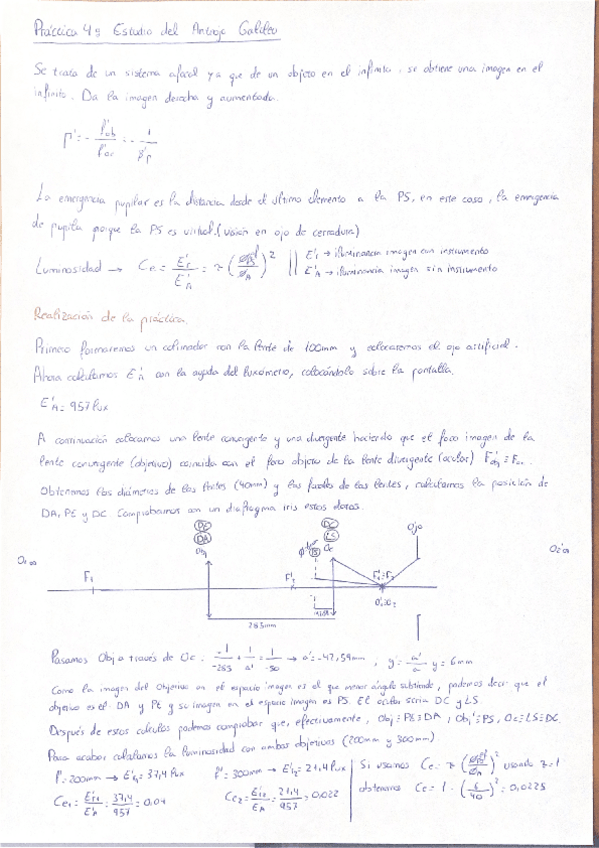 Práctica 4: Estudio del Anteojo Galileo
Se trata de un sistema afocal ya que de un objeto en el infinito, se obtiene una imagen en el
infinito. Da la imagen derecha y aumentada.
Γ' = - f'ob / f'oc = - 1 / β'p
La emergencia pupilar es la distancia desde el último elemento a la PS, en este caso, la emergencia
de pupila porque la PS es virtual. (visión en ojo de cerradura)
Luminosidad → Ce = E'I / E'A = τ ( / ØA)²
E'I → iluminancia imagen con instrumento
E'A → iluminancia imagen sin instrumento
Realización de la práctica.
Primero formaremos un colimador con la lente de 100mm y colocaremos el ojo artificial.
Ahora calculamos E'A con la ayuda del luxómetro, colocándolo sobre la pantalla.
E'A = 957 lux
A continuación colocamos una lente convergente y una divergente haciendo que el foco imagen de la
lente convergente (objetivo) coincida con el foco objeto de la lente divergente (ocular) F'obj ≡ Foc.
Obtenemos los diámetros de las lentes (40mm) y las focales de las lentes, calculamos la posición de
DA, PE y DC. Comprobamos con un diafragma iris estos datos.
DC DC
DA LS Ojo
Obj PS Oc
F1 F'2
253mm
Pasamos Obj a través de Oc: -1/-253 + 1/a' = 1/-50 → a' = -42,59mm, y' = a'/a y = 6mm
Como la imagen del Objetivo en el espacio imagen es el que menor ángulo subtiende, podemos decir que el
objetivo es el DA y PE y su imagen en el espacio imagen es PS. El ocular sería DC y LS.
Después de estos calculos podemos comprobar que, efectivamente, Obj ≡ PE ≡ DA, Obj' ≡ PS, Oc ≡ LS ≡ DC.
Para acabar calculamos la luminosidad con ambos objetivos (200mm y 300mm)
f' = 200mm → E'I1 = 37,4 lux f' = 300mm → E'I2 = 21,4 lux Si usamos Ce = τ ( / ØA)² usando τ=1
Ce1 = E'I1 / E'A = 37,4 / 957 = 0,04 Ce2 = E'I2 / E'A = 21,4 / 957 = 0,022 obtenemos Ce = 1 · (6/40)² = 0,0225